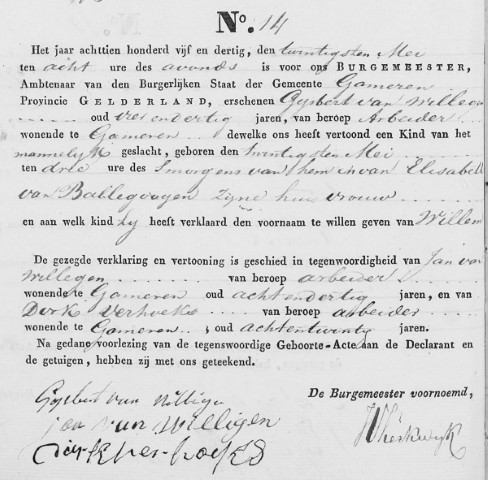 N.o 14
Het jaar achttien honderd vijf en dertig, den twintigsten Mei
ten acht ure des avonds is voor ons BURGEMEESTER,
Ambtenaar van den Burgerlijken Staat der Gemeente Gameren
Provincie GELDERLAND, erschenen Gysbert van Willegen
oud vier en dertig jaren, van beroep Arbeider
wonende te Gameren dewelke ons heeft vertoond een Kind van het
mannelyk geslacht, geboren den twintigsten Mei
ten drie ure des Smorgens van hem en van Elisabeth
van Ballegooyen zyne huisvrouw
en aan welk kind hy heeft verklaard den voornaam te willen geven van Willem
De gezegde verklaring en vertooning is geschied in tegenwoordigheid van Jan van
Willegen van beroep arbeider
wonende te Gameren oud achtendertig jaren, en van
Dirk Verhoeks van beroep arbeider
wonende te Gameren, oud achtentwintig jaren.
Na gedane voorlezing van de tegenswoordige Geboorte-Acte aan de Declarant en
de getuigen, hebben zij met ons geteekend.
De Burgemeester voornoemd,
Gysbert van Willigen
jan van Willigen
dirk ver hoeks